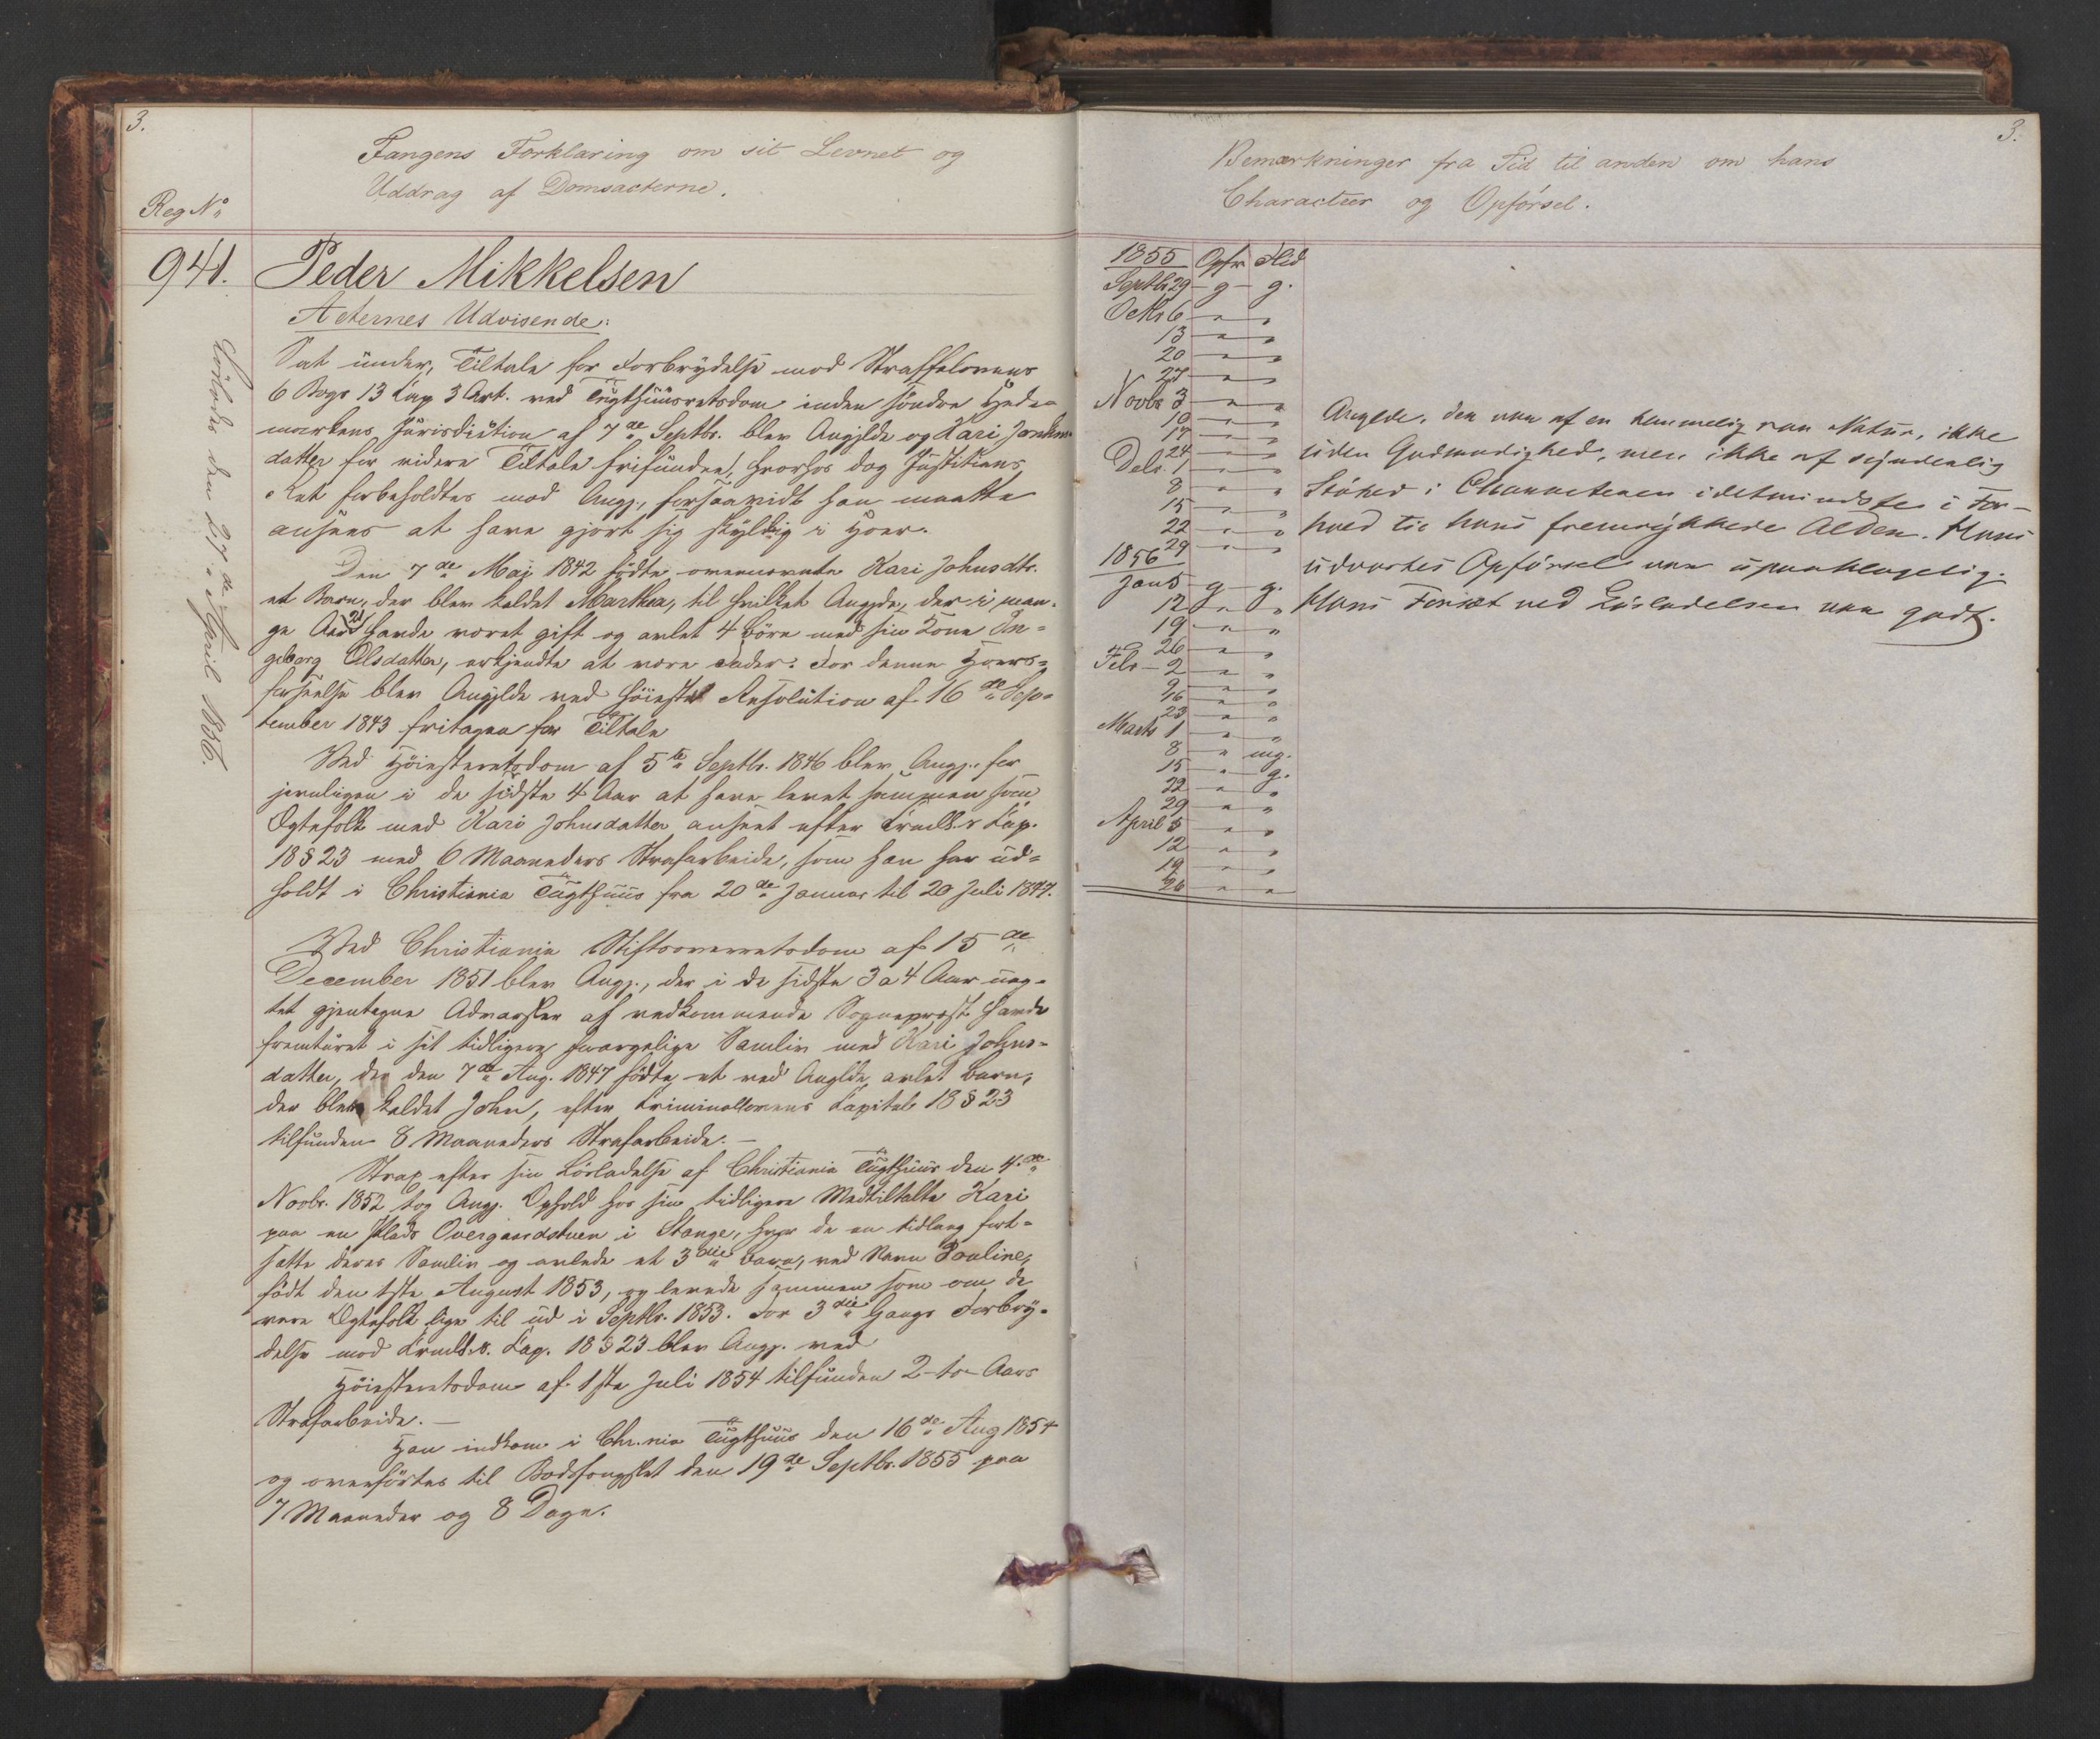 3.
Fangens Forklaring om sit Levnet og
Uddrag af Domsacterne.
Reg No
941.
Peder Mikkelsen
Acternes Udvisende:
Sat under Tiltale for Forbrydelse mod Straffelovens
6 Bogs 13 Cap 3 Art. ved Tugthuusretsdom inden söndre Hede-
markens Jurisdiction af 7de Septbr. blev Angjldte og Kari Johns-
datter for videre Tiltale frifunden, hvorhos dog Justitiens
Ret forbeholdtes mod Angj., forsaavidt han maatte
ansees at have gjort sig skyldig i Hoer.
Den 7de Maj 1842 födte ovennævnte Kari Johnsdtr.
et Barn, der blev kaldet Marthea, til hvilket Angjde, der i man-
ge Aar havde været gift og avlet 4 Börn med sin Kone In-
geborg Olsdatter, erkjendte at være Fader. For denne Hoers-
forseelse blev Angjldte ved höieste Resolution af 16de Sep-
tember 1843 fritagen for Tiltale
Ved Höiesteretsdom af 5te Septbr. 1846 blev Angj. for
jevnligen i de sidste 4 Aar at have levet sammen som
Ægtefolk med Kari Johnsdatter anseet efter Crmll.s Cap.
18 § 23 med 6 Maaneders Strafarbeide, som han har ud-
holdt i Christiania Tugthuus fra 20de Januar til 20 Juli 1847.
Ved Christiania Stiftsoverretsdom af 15de
December 1851 blev Angj., der i de sidste 3 a 4 Aar uag-
tet gjentagne Advarsler af vedkommende Sognepræst havde
fremturet i sit tidligere forargelige Samliv med Kari Johns-
datter, der den 7de Aug. 1847 födte et ved Angjldte avlet Barn,
der blev kaldet John, efter Criminallovens Capitel 18 § 23
tilfunden 8 Maaneders Strafarbeide. —
Strax efter sin Lösladelse af Christiania Tugthuus den 4de
Novbr. 1852 tog Angj. Ophold hos sin tidligere Medtiltalte Kari
paa en Plads Overgaardstuen i Stange, hvor de en tidlang fort-
satte deres Samliv og avlede et 3die Barn, ved Navn Pauline,
födt den 1ste August 1853, og levede sammen som om de
vare Ægtefolk lige til ud i Septbr. 1853. For 3die Gangs Forbry-
delse mod Crmll.s. Cap. 18 § 23 blev Angj. ved
Höiesteretsdom af 1ste Juli 1854 tilfunden 2-to Aars
Strafarbeide. —
Han indkom i Chr.nia Tugthuus den 16de Aug 1854
og overförtes til Bodsfængslet den 19de Septbr. 1855 paa
7 Maaneder og 8 Dage.
Löslodes den 27de April 1856.
3.
Bemærkninger fra Tid til anden om hans
Characteer og Opförsel.
1855 Opfr Flid
Septbr 29 - g - g.
Octbr 6 - " - "
13 - " - "
20 - " - "
27 - " - "
Novbr 3 - " - "
10 - " - "
17 - " - "
24 - " - "
Decbr. 1 - " - "
8 - " - "
15 - " - "
22 - " - "
29 - " - "
1856
Jan 5 - g - g.
12 - " - "
19 - " - "
26 - " - "
Febr - 2 - " - "
9 - " - "
16 - " - "
23 - " - "
Marts 1 - " - "
8 - " - mg.
15 - " - g.
22 - " - "
29 - " - "
April 5 - " - "
12 - " - "
19 - " - "
26 - " - "
Angjlde. der var af en temmelig raa Natur, ikke
uden Godmodighed, men ikke af synderlig
Stöhed i Characteren idetmindste i For-
hold til hans fremrykkede Alder. Hans
udvortes Opförsel var upaaklagelig.
Hans Forsæt ved Lösladelsen var godt.